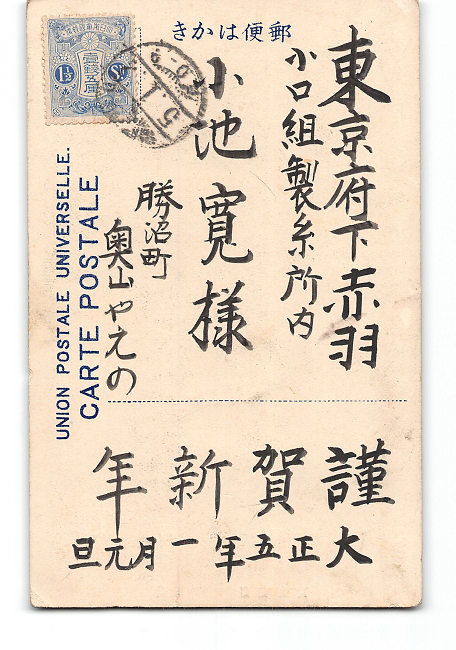 きかは便郵
東京府下赤羽
小口組製糸所内
小池寛様
勝沼町
奥山やえの
謹賀新年
大正五年一月元旦
UNION POSTALE UNIVERSELLE.
CARTE POSTALE
壹錢五厘
1½ Sn